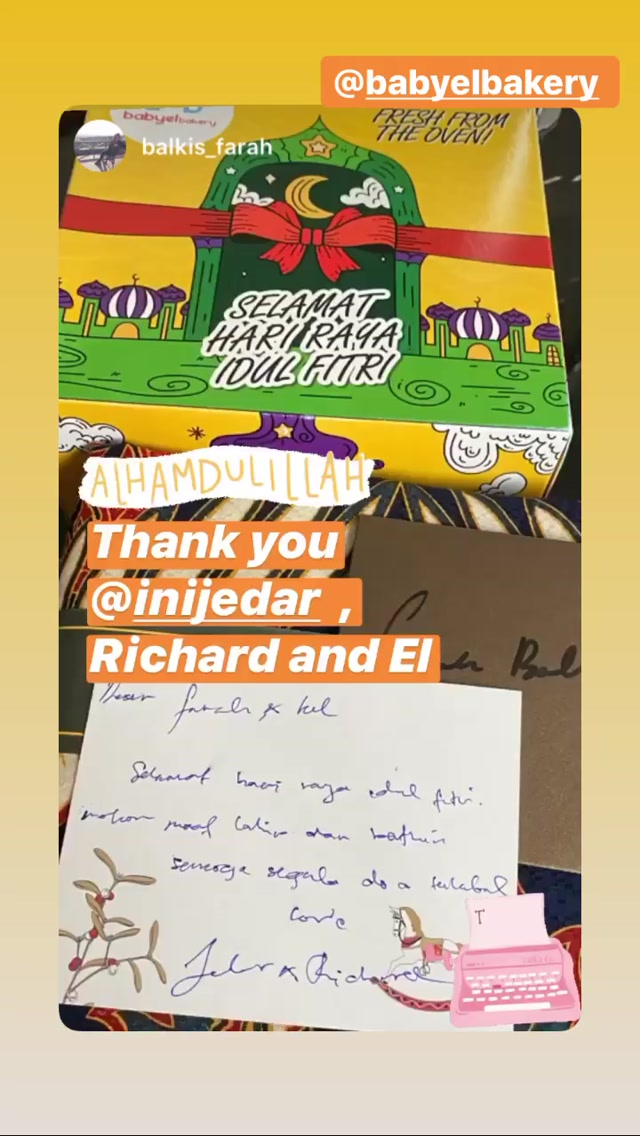 @babyelbakery
babyelbakery
FRESH FROM
THE OVEN!
balkis_farah
SELAMAT
HARI RAYA
IDUL FITRI
ALHAMDULILLAH
Thank you
@inijedar ,
Richard and El
Dear farah & kel
Selamat hari raya idul fitri.
mohon maaf lahir dan bathin
semoga segala do a terkabul
Love
& Richard
T